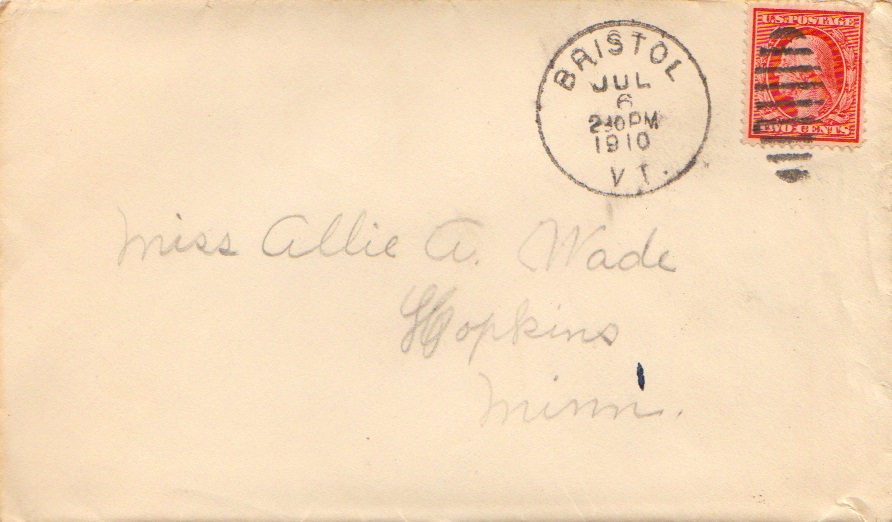 BRISTOL
JUL
6
230PM
1910
VT.
U.S. POSTAGE
TWO CENTS
Miss Allie A. Wade
Hopkins
Minn.